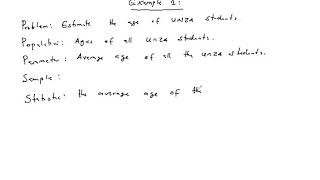 Example 1:
Problem: Estimate the age of UNZA students.
Population: Ages of all UNZA students.
Parameter: Average age of all the UNZA students.
Sample:
Statistic: the average age of th